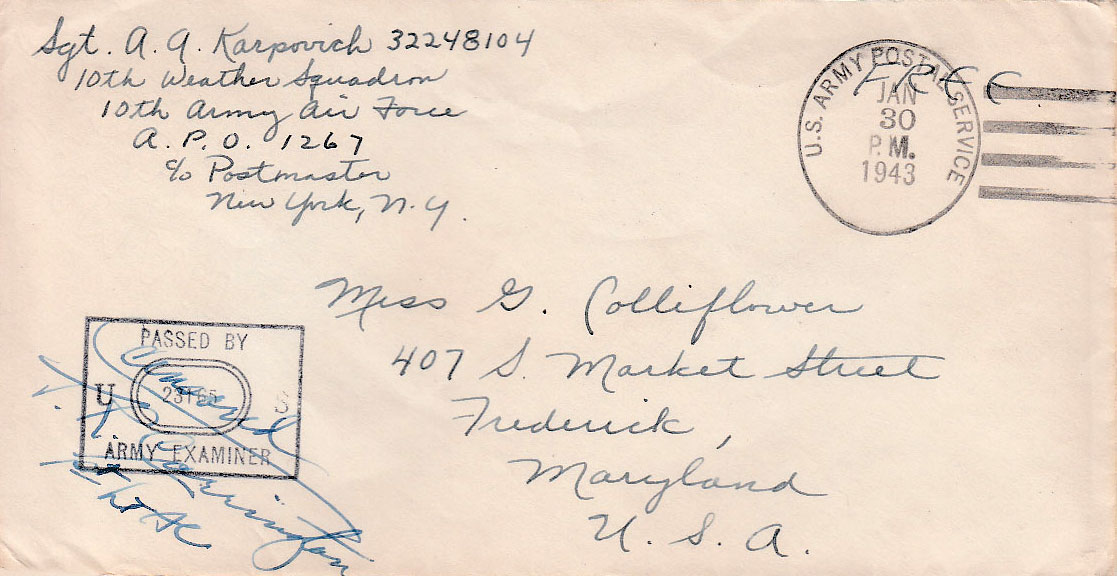 Sgt. A. A. Karpovich 32248104
10th Weather Squadron
10th Army Air Force
A. P. O. 1267
c/o Postmaster
New York, N. Y.
U.S. ARMY POSTAL SERVICE
FREE
JAN
30
P.M.
1943
Miss G. Colliflower
407 S. Market Street
Frederick,
Maryland
U. S. A.
PASSED BY
U S
ARMY EXAMINER
Censored
Carrington
1st Lt AC